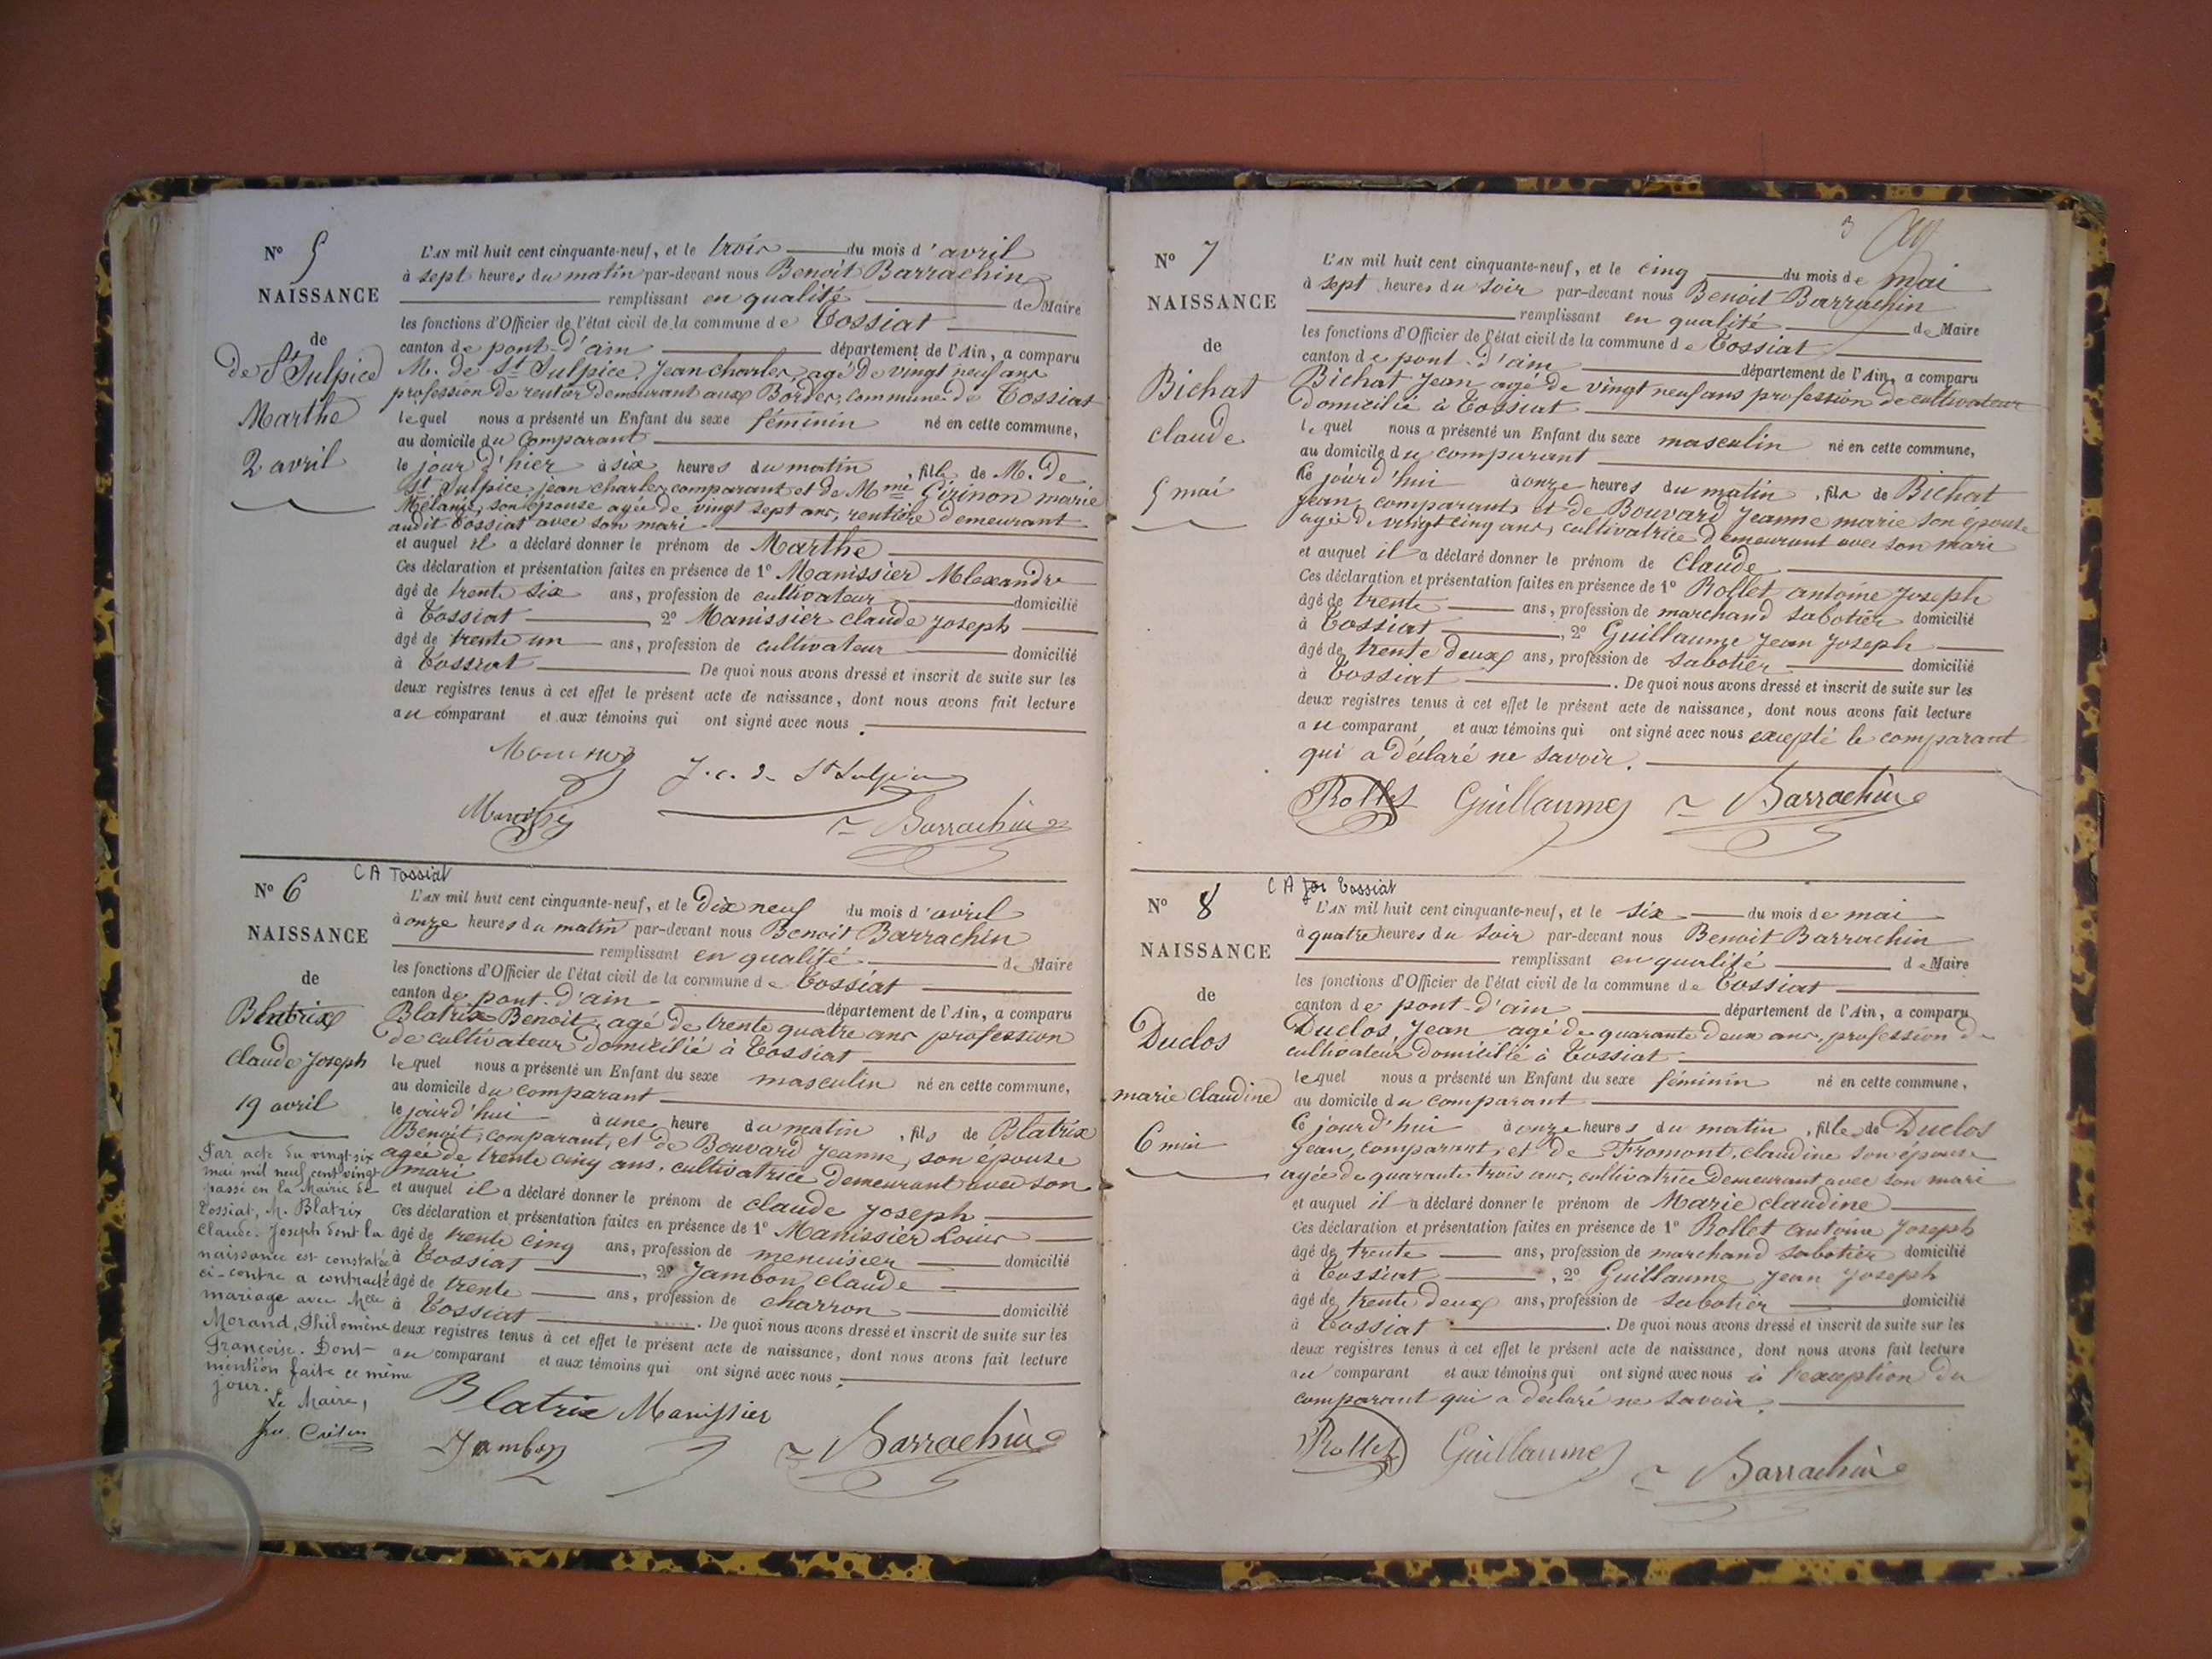 N° 5
NAISSANCE
de
de St Sulpice
Marthe
2 avril
L'AN mil huit cent cinquante-neuf, et le trois du mois d'avril
à sept heures du matin par-devant nous Benoit Barrachin
remplissant en qualité de Maire
les fonctions d'Officier de l'état civil de la commune de Tossiat
canton de pont-d'ain département de l'Ain, a comparu
M. de St Sulpice, Jean charles, agé de vingt neuf ans
profession de rentier demeurant aux Bordes, commune de Tossiat
lequel nous a présenté un Enfant du sexe féminin né en cette commune,
au domicile du Comparant
le jour d'hier à six heures du matin, fille de M. de
St Sulpice, jean charles, comparant et de Mme Girinon marie
Mélanie, son épouse agée de vingt sept ans, rentière demeurant
audit Tossiat avec son mari
et auquel il a déclaré donner le prénom de Marthe
Ces déclaration et présentation faites en présence de 1° Manissier Alexandre
âgé de trente six ans, profession de cultivateur domicilié
à Tossiat, 2° Manissier claude joseph
âgé de trente un ans, profession de cultivateur domicilié
à Tossiat De quoi nous avons dressé et inscrit de suite sur les
deux registres tenus à cet effet le présent acte de naissance, dont nous avons fait lecture
au comparant et aux témoins qui ont signé avec nous.
J. c. de St Sulpice
Barrachin
C A Tossiat
N° 6
NAISSANCE
de
Blatrix
Claude Joseph
19 avril
L'AN mil huit cent cinquante-neuf, et le dix neuf du mois d'avril
à onze heures du matin par-devant nous Benoit Barrachin
remplissant en qualité de Maire
les fonctions d'Officier de l'état civil de la commune de Tossiat
canton de pont-d'ain département de l'Ain, a comparu
Blatrix Benoit, agé de trente quatre ans profession
de cultivateur domicilié à Tossiat
lequel nous a présenté un Enfant du sexe masculin né en cette commune,
au domicile du comparant
le jourd'hui à une heure du matin, fils de Blatrix
Benoit, comparant, et de Bouvard Jeanne, son épouse
agée de trente cinq ans, cultivatrice demeurant avec son
mari
et auquel il a déclaré donner le prénom de claude joseph
Ces déclaration et présentation faites en présence de 1° Manissier Louis
âgé de trente cinq ans, profession de menuisier domicilié
à Tossiat, 2° Jambon claude
âgé de trente ans, profession de charron domicilié
à Tossiat. De quoi nous avons dressé et inscrit de suite sur les
deux registres tenus à cet effet le présent acte de naissance, dont nous avons fait lecture
au comparant et aux témoins qui ont signé avec nous.
Blatrix Manissier
Jambon Barrachin
Par acte du vingt-six
mai mil neuf cent vingt
passé en la Mairie de
Tossiat, M. Blatrix
Claude-Joseph dont la
naissance est constatée
ci-contre a contracté
mariage avec Melle
Morand, Philomène
Françoise. Dont
mention faite ce même
jour.
Le Maire,
3
N° 7
NAISSANCE
de
Bichat
claude
5 mai
L'AN mil huit cent cinquante-neuf, et le cinq du mois de mai
à sept heures du soir par-devant nous Benoit Barrachin
remplissant en qualité de Maire
les fonctions d'Officier de l'état civil de la commune de Tossiat
canton de pont-d'ain département de l'Ain, a comparu
Bichat Jean agé de vingt neuf ans profession de cultivateur
domicilié à Tossiat
lequel nous a présenté un Enfant du sexe masculin né en cette commune,
au domicile du comparant
ce jourd'hui à onze heures du matin, fils de Bichat
Jean, comparant, et de Bouvard Jeanne marie son épouse
agée de vingt cinq ans, cultivatrice demeurant avec son mari
et auquel il a déclaré donner le prénom de Claude
Ces déclaration et présentation faites en présence de 1° Rollet antoine Joseph
âgé de trente ans, profession de marchand sabotier domicilié
à Tossiat, 2° Guillaume Jean Joseph
âgé de trente deux ans, profession de sabotier domicilié
à Tossiat. De quoi nous avons dressé et inscrit de suite sur les
deux registres tenus à cet effet le présent acte de naissance, dont nous avons fait lecture
au comparant et aux témoins qui ont signé avec nous excepté le comparant
qui a déclaré ne savoir.
Rollet Guillaume Barrachin
N° 8
NAISSANCE
de
Duclos
marie Claudine
6 mai
L'AN mil huit cent cinquante-neuf, et le six du mois de mai
à quatre heures du soir par-devant nous Benoit Barrachin
remplissant en qualité de Maire
les fonctions d'Officier de l'état civil de la commune de Tossiat
canton de pont-d'ain département de l'Ain, a comparu
Duclos Jean agé de quarante deux ans, profession de
cultivateur domicilié à Tossiat
lequel nous a présenté un Enfant du sexe féminin né en cette commune,
au domicile du comparant
Ce jourd'hui à onze heures du matin, fille de Duclos
Jean, comparant, et de Fromont, claudine son épouse
agée de quarante trois ans, cultivatrice demeurant avec son mari
et auquel il a déclaré donner le prénom de Marie claudine
Ces déclaration et présentation faites en présence de 1° Rollet antoine Joseph
âgé de trente ans, profession de marchand sabotier domicilié
à Tossiat, 2° Guillaume Jean Joseph
âgé de trente deux ans, profession de sabotier domicilié
à Tossiat. De quoi nous avons dressé et inscrit de suite sur les
deux registres tenus à cet effet le présent acte de naissance, dont nous avons fait lecture
au comparant et aux témoins qui ont signé avec nous à l'exception du
comparant qui a déclaré ne savoir.
Rollet Guillaume Barrachin